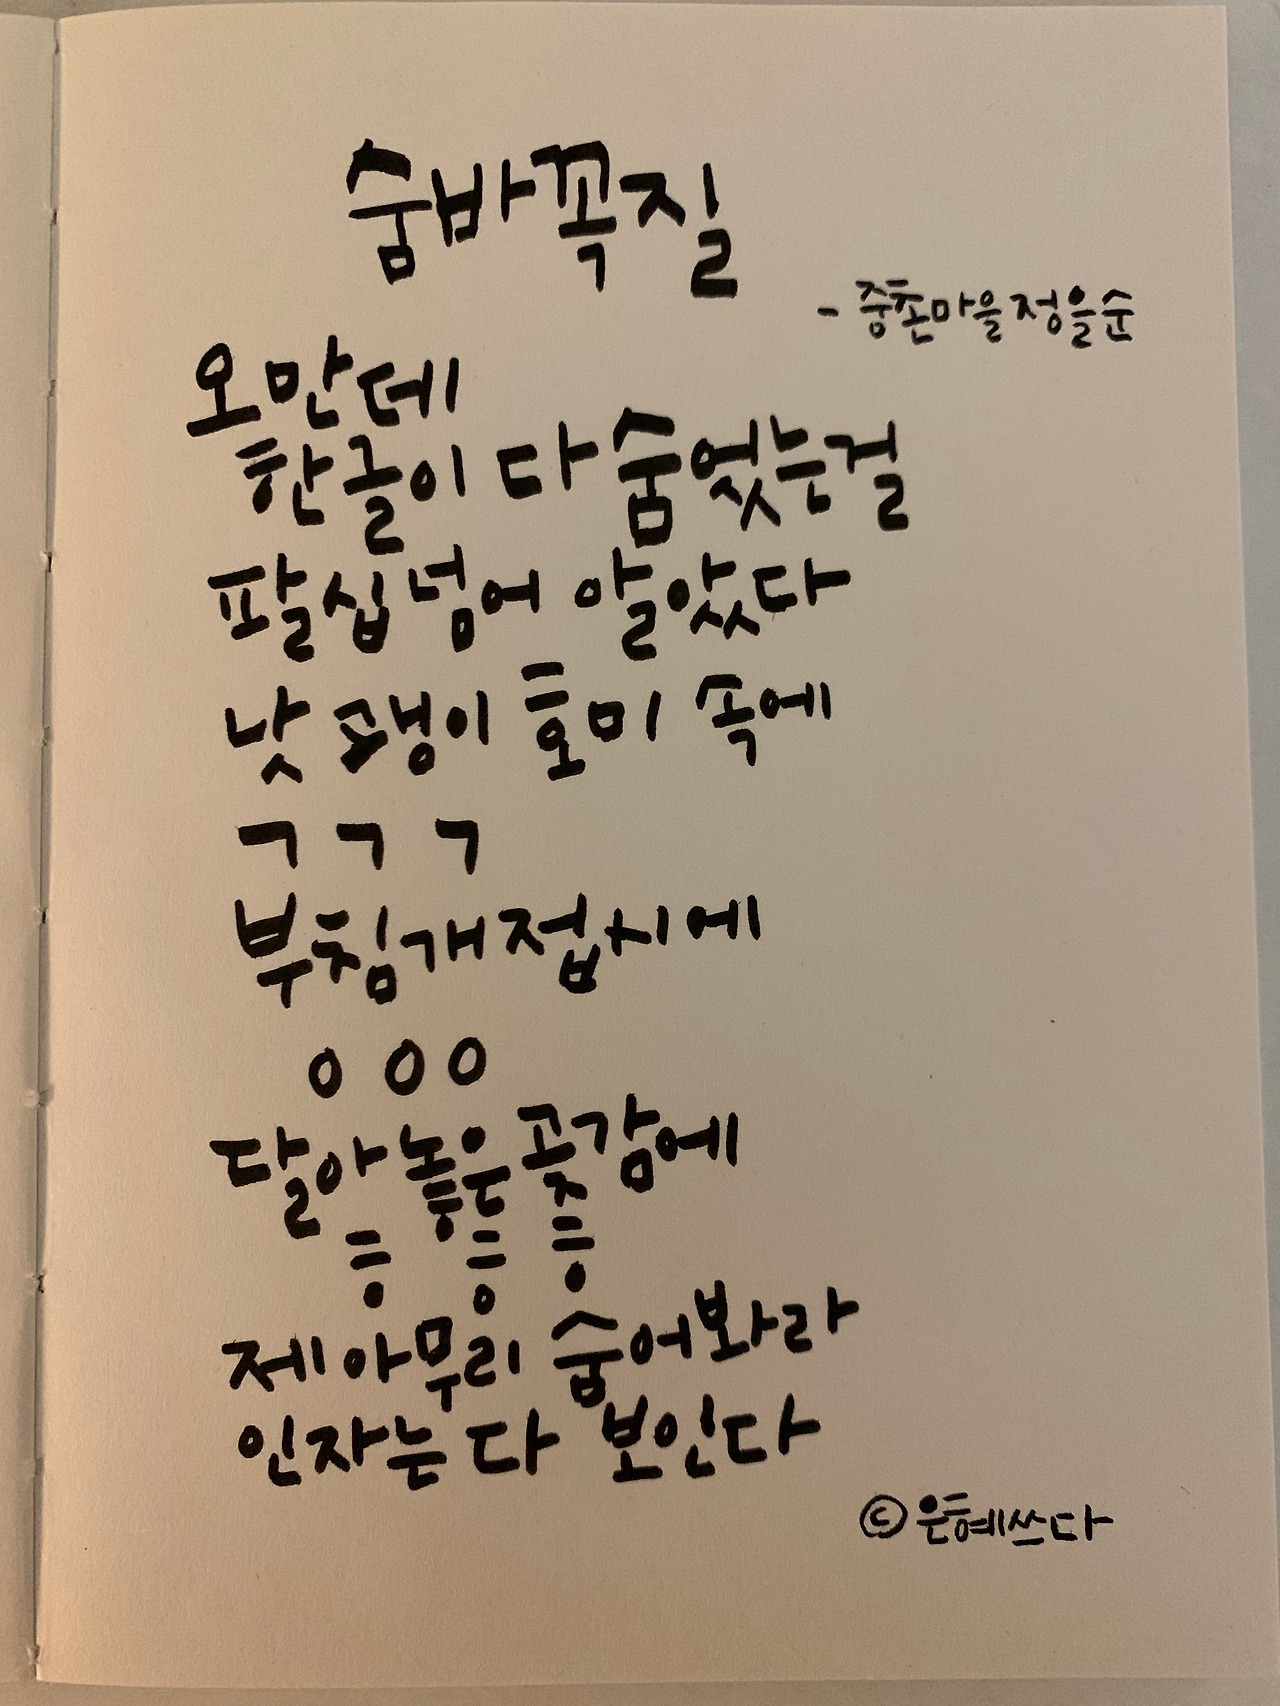 숨바꼭질
- 중촌마을 정을순
오만데
한글이 다 숨었는걸
팔십 넘어 알았다
낫 괭이 호미 속에
ㄱ ㄱ ㄱ
부침개 접시에
ㅇ ㅇ ㅇ
달아 놓은 곶감에
ㅎ ㅎ ㅎ
제아무리 숨어봐라
인자는 다 보인다
© 은혜쓰다